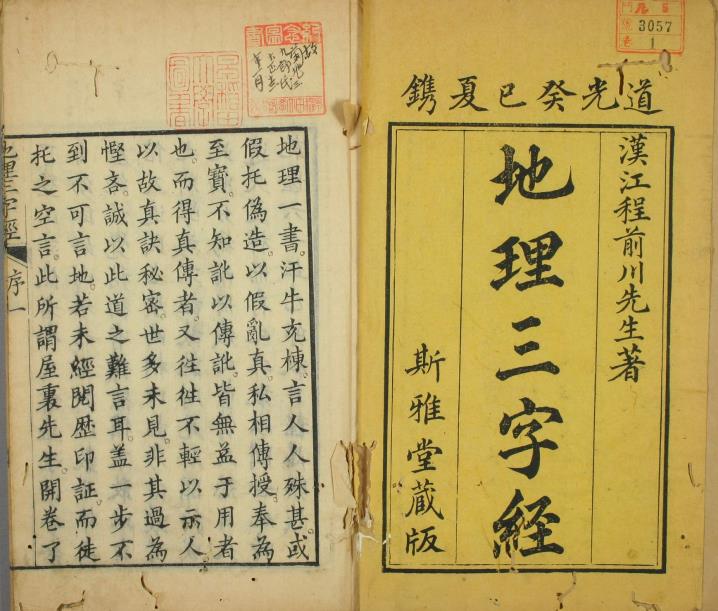 道光癸巳夏鐫
漢江程前川先生著
地理三字經
斯雅堂藏版
3057
1
地理一書。汗牛充棟。言人人殊。甚或
假托偽造。以假亂真。私相傳授。奉為
至寶。不知訛以傳訛。皆無益于用者
也。而得真傳者。又徃徃不輕以示人
以故真訣秘密。世多未見。非其過為
慳吝。誠以此道之難言耳。盖一步不
到不可言地。若未經閱歴印証。而徒
托之空言。此所謂屋裏先生。開卷了
地理三字經
序一